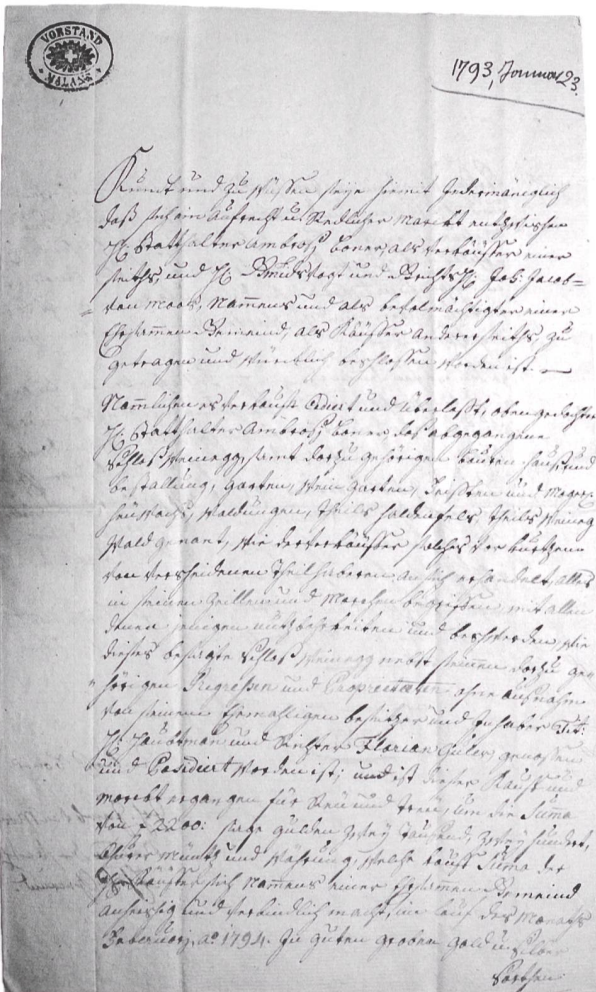 VORSTAND
MALANS
1793, Januar 23.
Kundt und zu wüssen seye hiemit Jedermäniglich
daß sich ein Aufrecht u. Redlicher Marckt entzwischen
H. Statthalter Ambrosi Boner, als Verkäuffer einer
seiths, und H. Bundsvogt und H. Jos: Jacob
von Moos, Nammens und als befolmächtigter einer
Ehrsammen Gemeind, als Käuffer anderseiths, zu
getragen und würcklich beschlossen worden ist.
Nammlichen es verkauft Cediert und überlasst, obengedachter
H. Statthalter Ambrosi Boner, das abgegangene
Schloß Weinegg, samt darzu gehörigen bauten hauß und
bestallung, garten, Wein garten, und Mager
heüwachs, Waldungen, theils haldenfels, theils Weineg
Wald genant, wie der verkäuffer solches vor kurtzem
von verscheidenen Theilhaberen an sich erhandelt, alles
in seinen Zillen und Marchen begriffen mit allen
denen jenigen nutzbahrkeiten und beschwerden, wie
dieses besagte Schloß Weinegg nebst seinen darzu ge
hörigen und ohne ausnahm
von seinem Ehemahligen besitzer und Inhaber Tit:
H. Haubtman und Richter Florian Guler genossen
und Possidiert worden ist; und ist dieser Kauff und
Marckt ergangen für Neü und treü, um die Suma
von f 2200: sage gulden Zwey Tausend, Zwey hundert,
Churer Müntz und Währung, welche Kauff Suma der
H. Käuffer sich Nammens einer Ehrsamen Gemeind
anheischig und verbindlich macht, im lauf des Monats
Februarj aº 1794. In guten groben gold und Silber
Sorthen